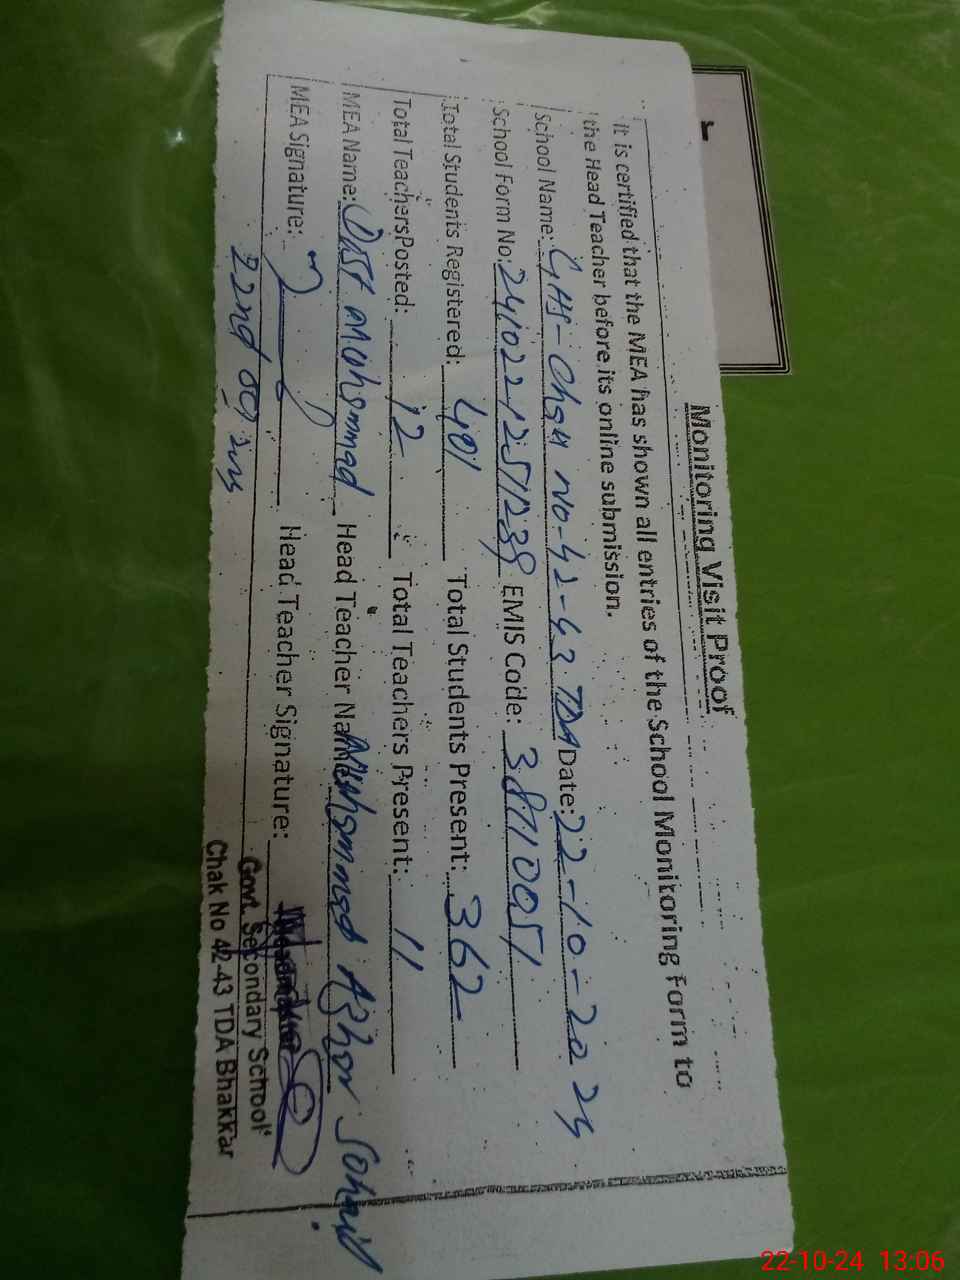 Monitoring Visit Proof
It is certified that the MEA has shown all entries of the School Monitoring Form to
the Head Teacher before its online submission.
School Name: GHS-Chak No-42-43 TDA Date: 22-10-2024
School Form No: 2410221251239 EMIS Code: 38110051
Total Students Registered: 401 Total Students Present: 362
Total Teachers Posted: 12 Total Teachers Present: 11
MEA Name: Dost Muhammad Head Teacher Name: Muhammad Azhar Sohail
MEA Signature: Head Teacher Signature:
22nd
Headmaster
Govt. Secondary School
Chak No 42-43 TDA Bhakkar
22-10-24 13:06